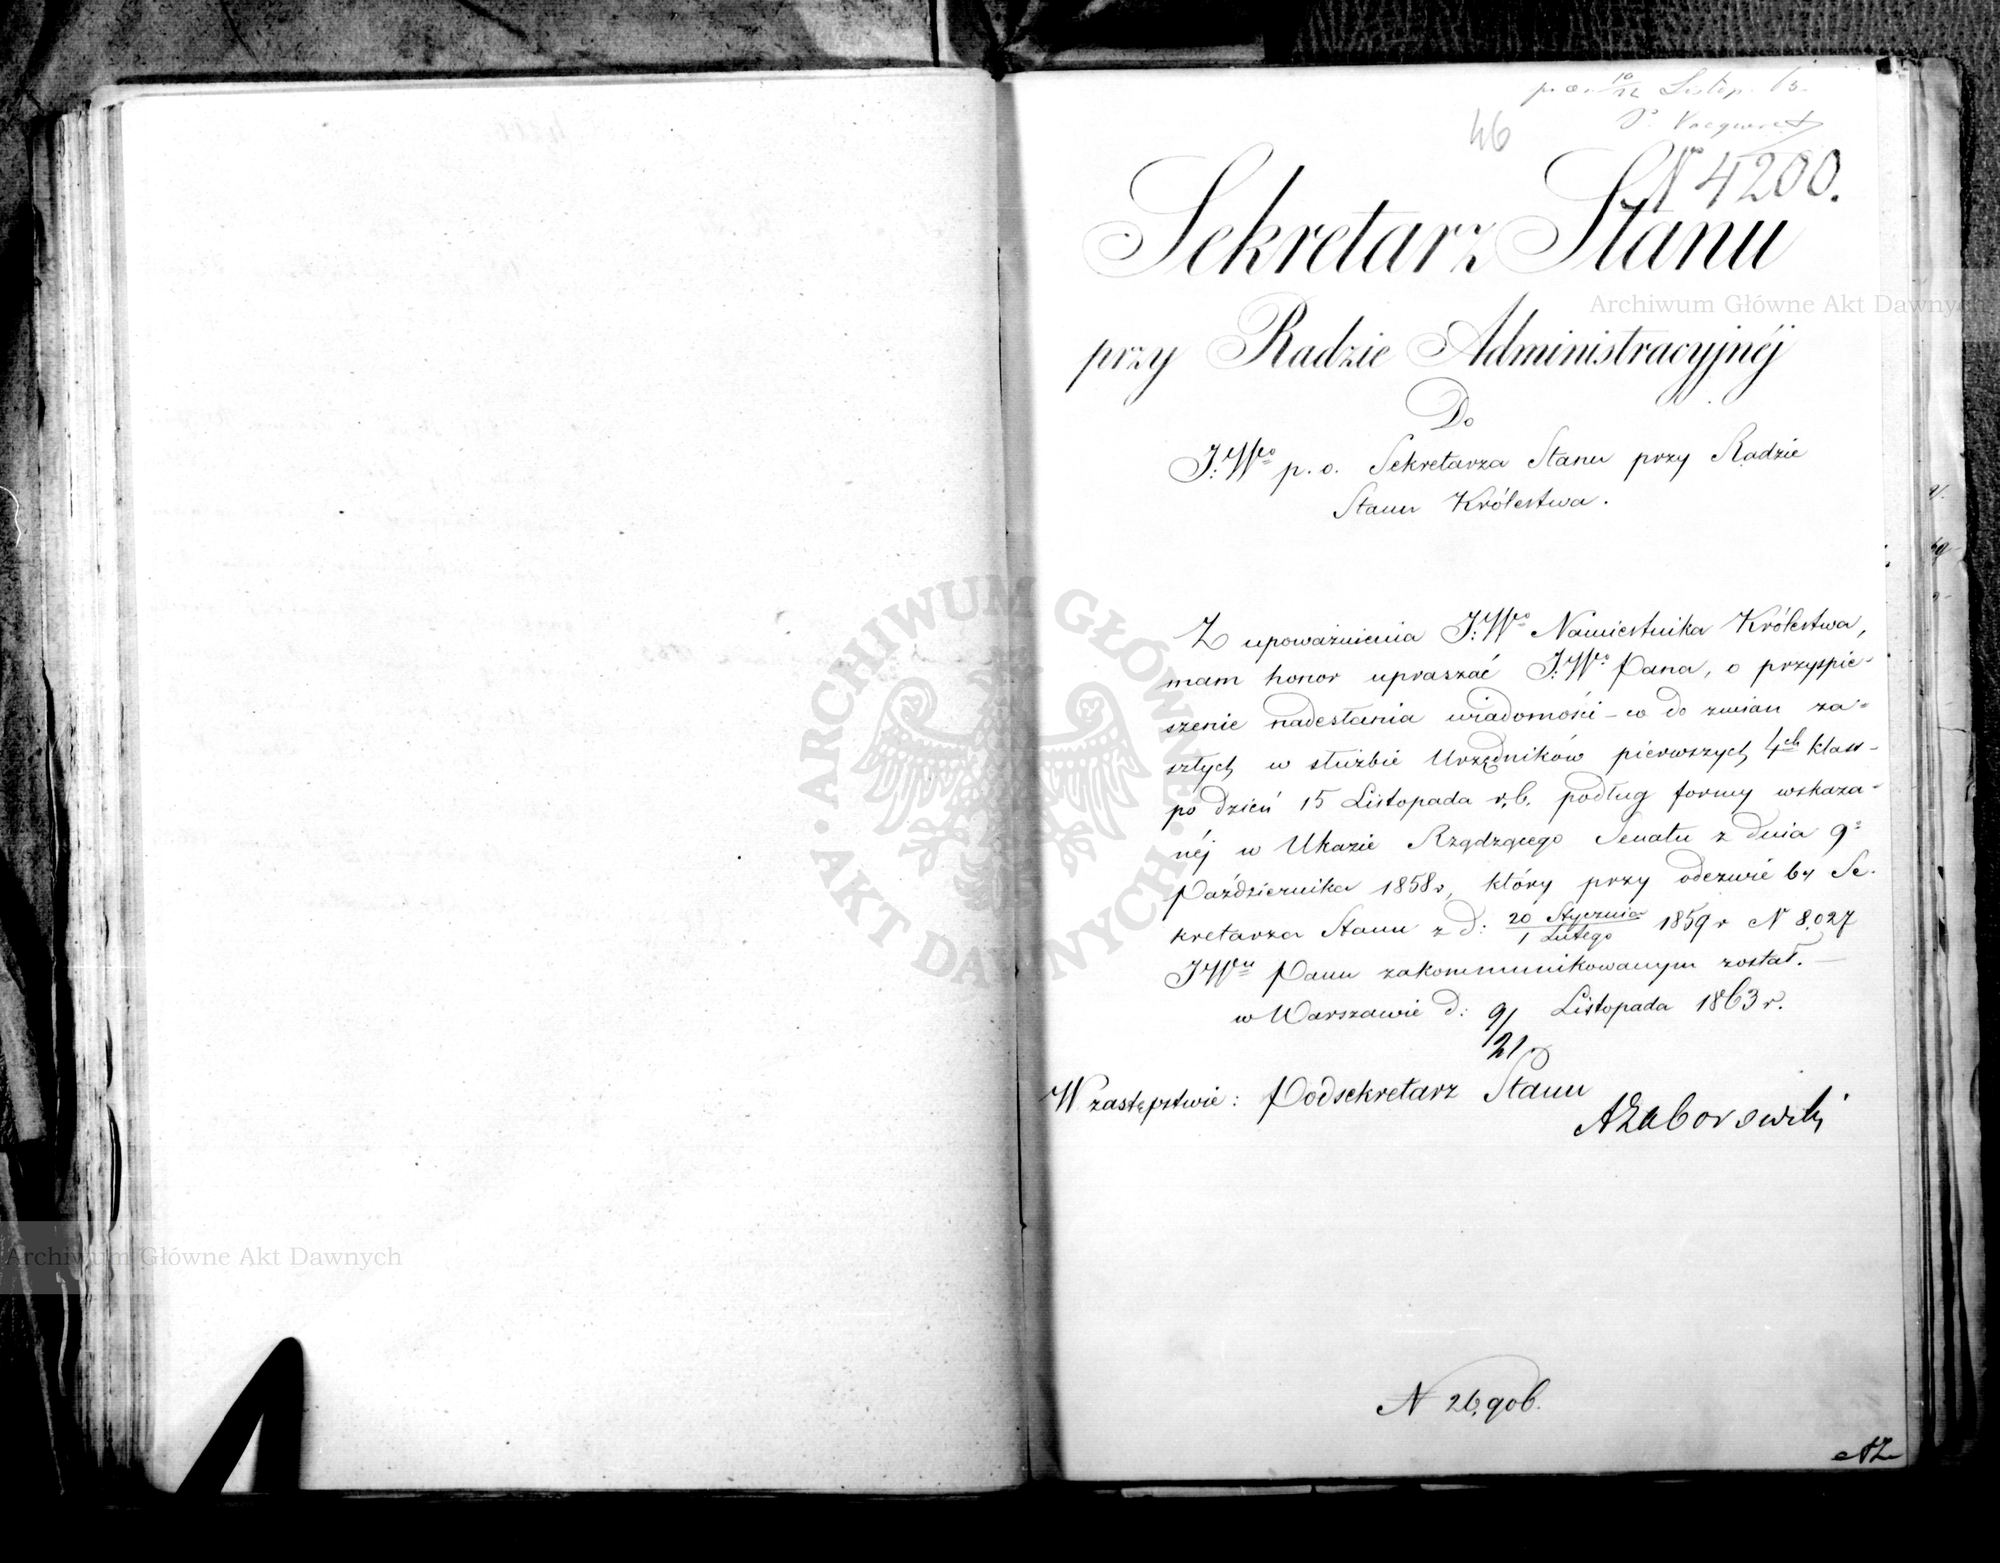 10/22 Listop. 63
46
N 4200.
Sekretarz Stanu
przy Radzie Administracyjnéj
Do
J:Wo p. o. Sekretarza Stanu przy Radzie
Stanu Królestwa.
Z upoważnienia J:Wo Namiestnika Królestwa,
mam honor upraszać J:Wo Pana, o przyspie-
szenie nadesłania wiadomości co do zmian za-
szłych w służbie Urzędników pierwszych 4ch klass
po dzień 15 Listopada r.b. podług formy wskaza-
néj w Ukazie Rządzącego Senatu z dnia 9o
Października 1858 r, który przy odezwie by Se-
kretarza Stanu z d: 20 Stycznia/1 Lutego 1859 r N 8,027
JWu Panu zakommunikowanym został. —
w Warszawie d: 9/21 Listopada 1863 r.
W zastępstwie: Podsekretarz Stanu
AZaborowski
N 26,906.
AZ
Archiwum Główne Akt Dawnych
Archiwum Główne Akt Dawnych
ARCHIWUM GŁÓWNE · AKT DAWNYCH ·